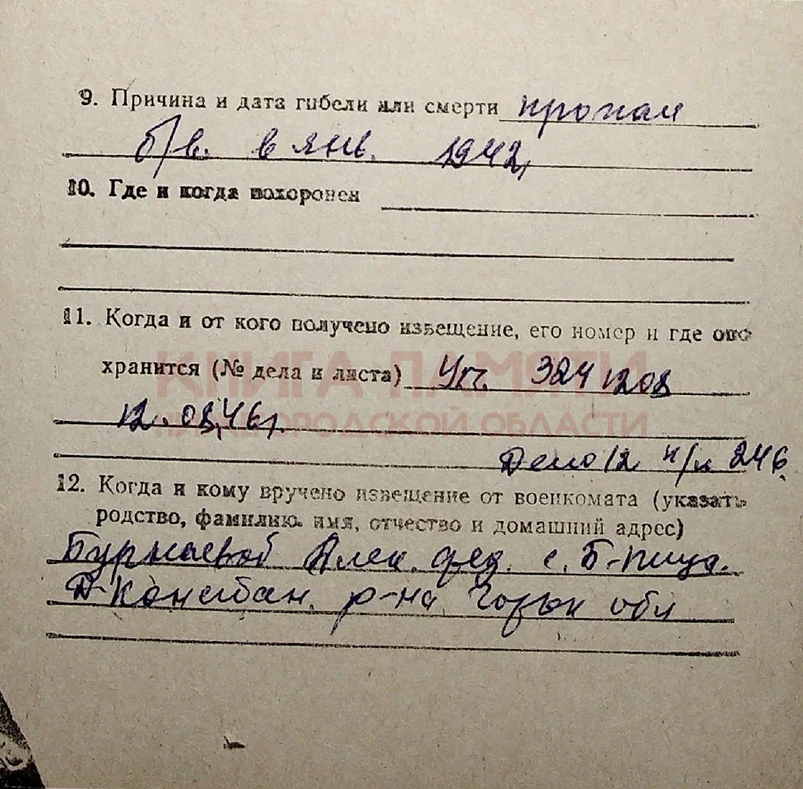 9. Причина и дата гибели или смерти пропал
б/в. в янв. 1942,
10. Где и когда похоронен
11. Когда и от кого получено извещение, его номер и где оно
хранится (№ дела и листа) Уп. 324 1208
КНИГА ПАМЯТИ
12.08,46г.
НИЖЕГОРОДСКОЙ ОБЛАСТИ
Дело 12 н/л 246.
12. Когда и кому вручено извещение от военкомата (указать
родство, фамилию. имя, отчество и домашний адрес)
Бурнаевой Алек. Фед. с. Б-пица.
Д-Константин. р-на Горьк обл